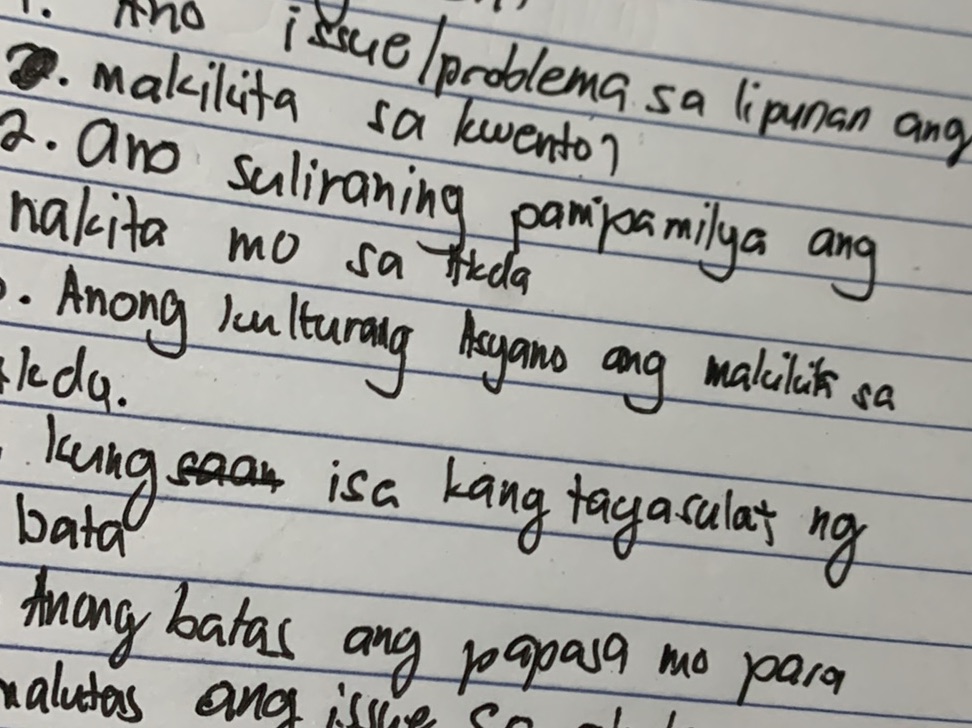 1. Ano issue/problema sa lipunan ang
makikita sa kwento?
2. ano suliraning pampamilya ang
nakita mo sa Akda
. Anong kulturang Asyano ang makikita sa
Akda.
kung saan isa kang tagasulat ng
bata
Anong batas ang papasa mo para
malutas ang issue sa